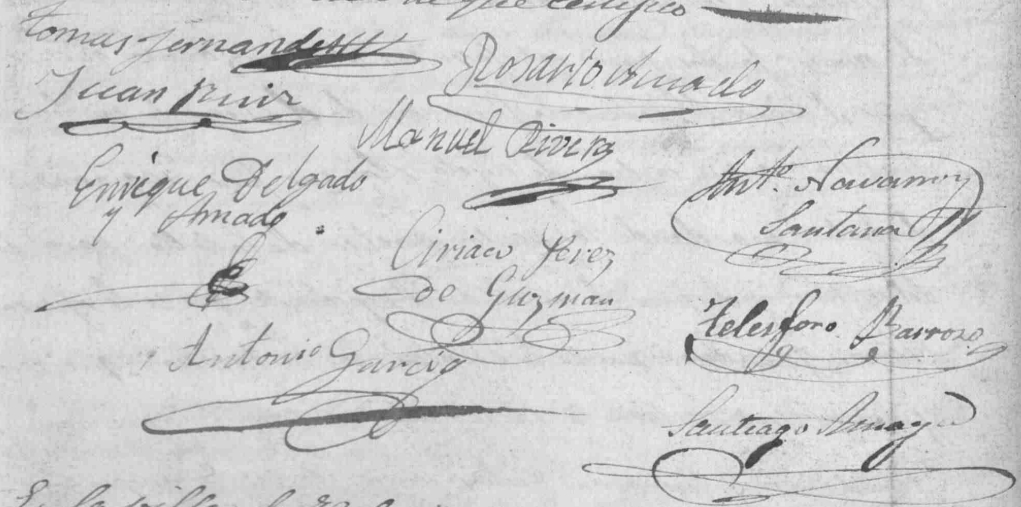 que certifico
Tomas Fernandez
Rosario Amado
Juan Ruiz
Manuel Rivera
Enrique Delgado
y Amado
Anto. Navarro y
Santana
Ciriaco Perez
de Guzman
Telesforo Barroso
Antonio Garcia
Santiago Amaya
En la villa de